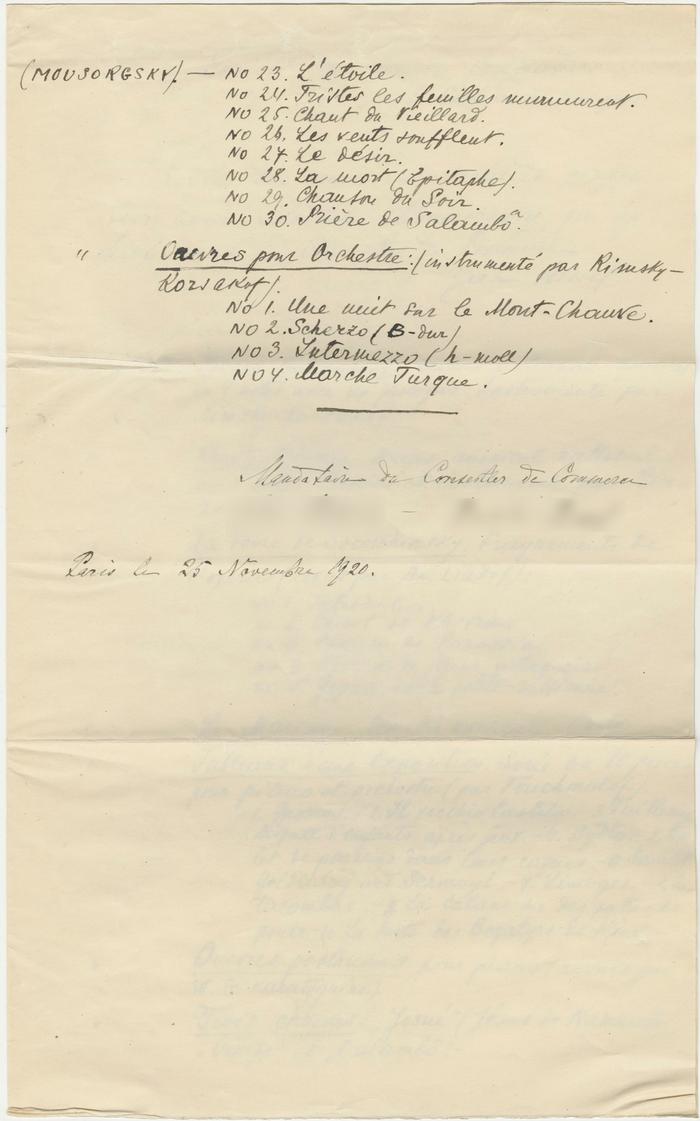 (MOUSORGSKY). — No 23. L'étoile.
No 24. Tristes les feuilles murmurent.
No 25. Chant du Vieillard.
No 26. Les vents soufflent.
No 27. Le désir.
No 28. La mort (Epitaphe).
No 29. Chanson du Soir.
No 30. Prière de Salambô.
" Ouvres pour Orchestre: (instrumenté par Rimsky-
Korsakof).
No 1. Une nuit sur le Mont-Chauve.
No 2. Scherzo (B-dur)
No 3. Intermezzo (h-moll)
No 4. Marche Turque.
Mandataire du Conseiller de Commerce
Paris le 25 Novembre 1920.